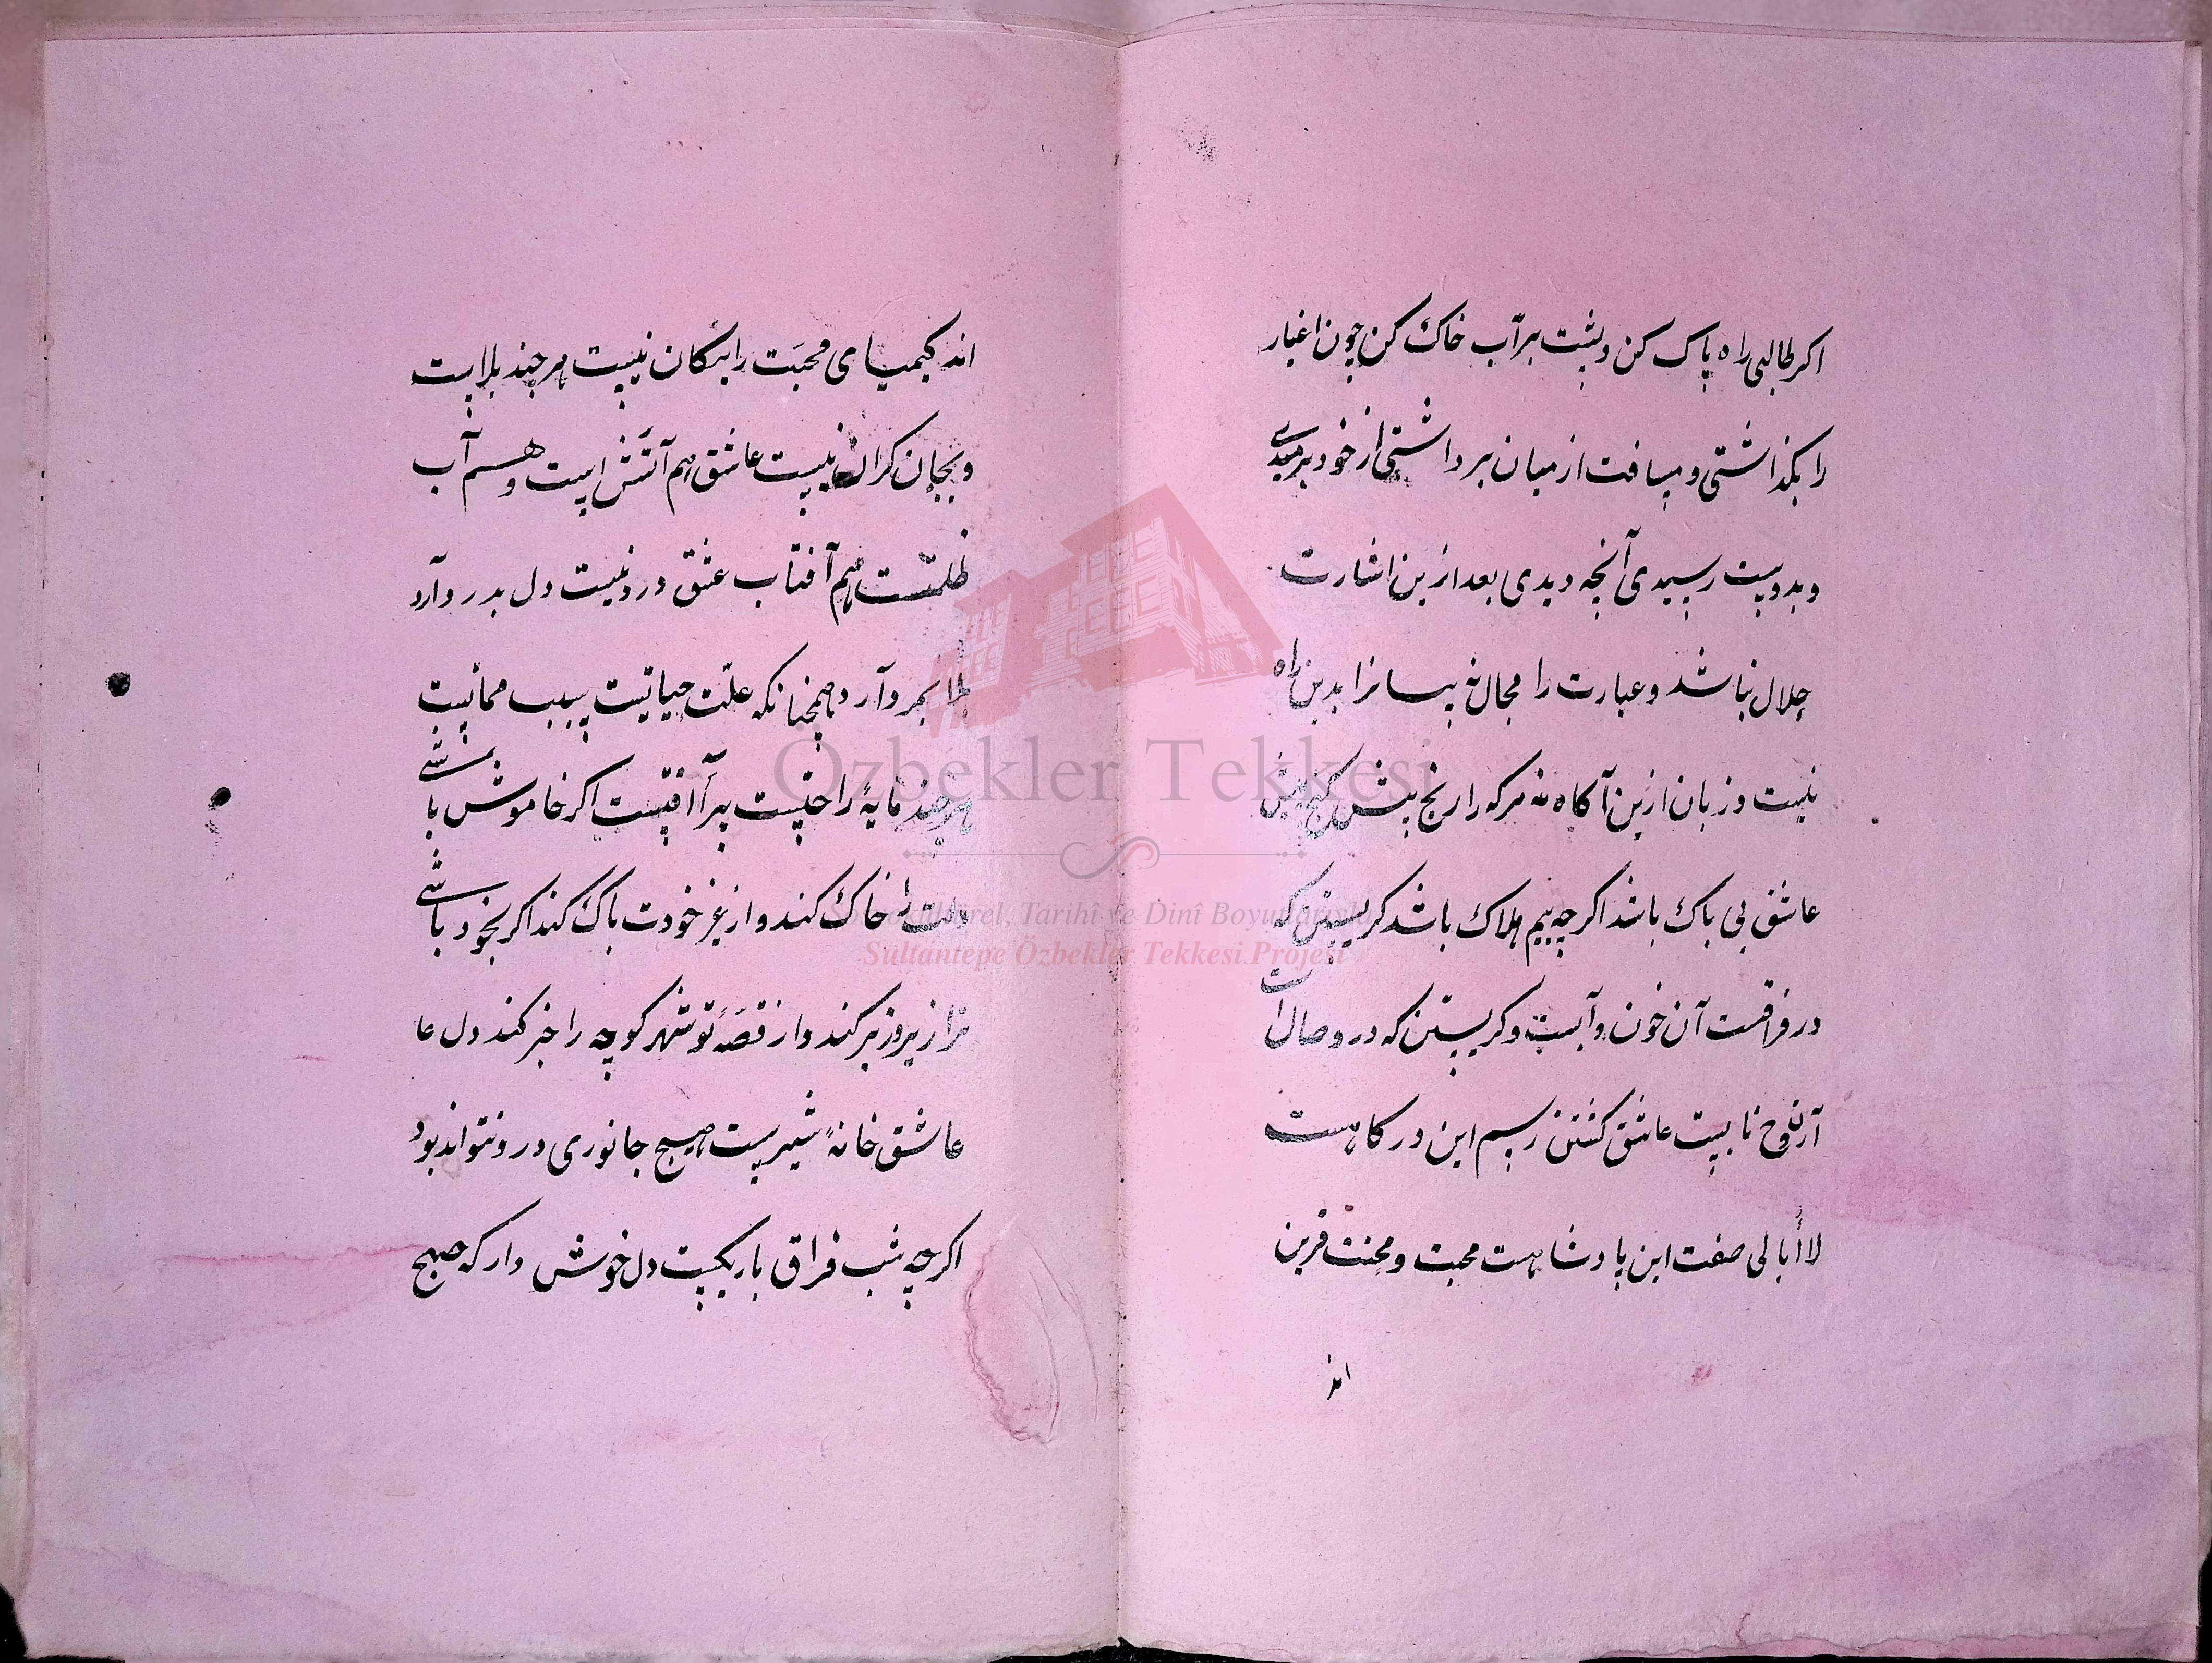 اکر طالبی راه پاک کن و پشت بر آب خاک کن چون اغیار
را بکذاشتی و مسافت از میان برداشتی از خود برمیدی
و بدوست رسیدی آنچه دیدی بعد ازین اشارت
جلال نباشد و عبارت را مجال نه لسانرا بدین راه
نیست و زبان ازین آکاه نه هرکه را رنج بیش کنج
عاشق بی باک باشد اکرچه بیم هلاک باشد کریستن که
در فراقست آن خون و آبست و کریستن که در وصال است
آن روح نابست عاشق کشتن رسم این درکاهست
لا أبالی صفت این پادشاهست محبت و محنت قرین
اند
اند کیمیای محبت رایکان نیست هرچند بلاست
و بجان کران نیست عاشق هم آتش است و هم آب
ظلمتست هم آفتاب عشق درد نیست دل بدرد آرد
بلا بمرد آرد همچنانکه علت حیاتست سبب مماتست
هرچند مایهٔ راحتست پیر آفتست اکر خاموش باشی
دلت را خاک کند و از غیر خودت پاک کند اکر بخود باشی
ترا زیر و زبر کند و از قصهٔ تو شهر کوچه را خبر کند دل عا
عاشق خانهٔ شیرست هیچ جانوری درو نتواند بود
اکرچه شب فراق باریکست دل خوش دار که صبح
Özbekler Tekkesi
Tarihî ve Dinî
Sultantepe Özbekler Tekkesi Projesi